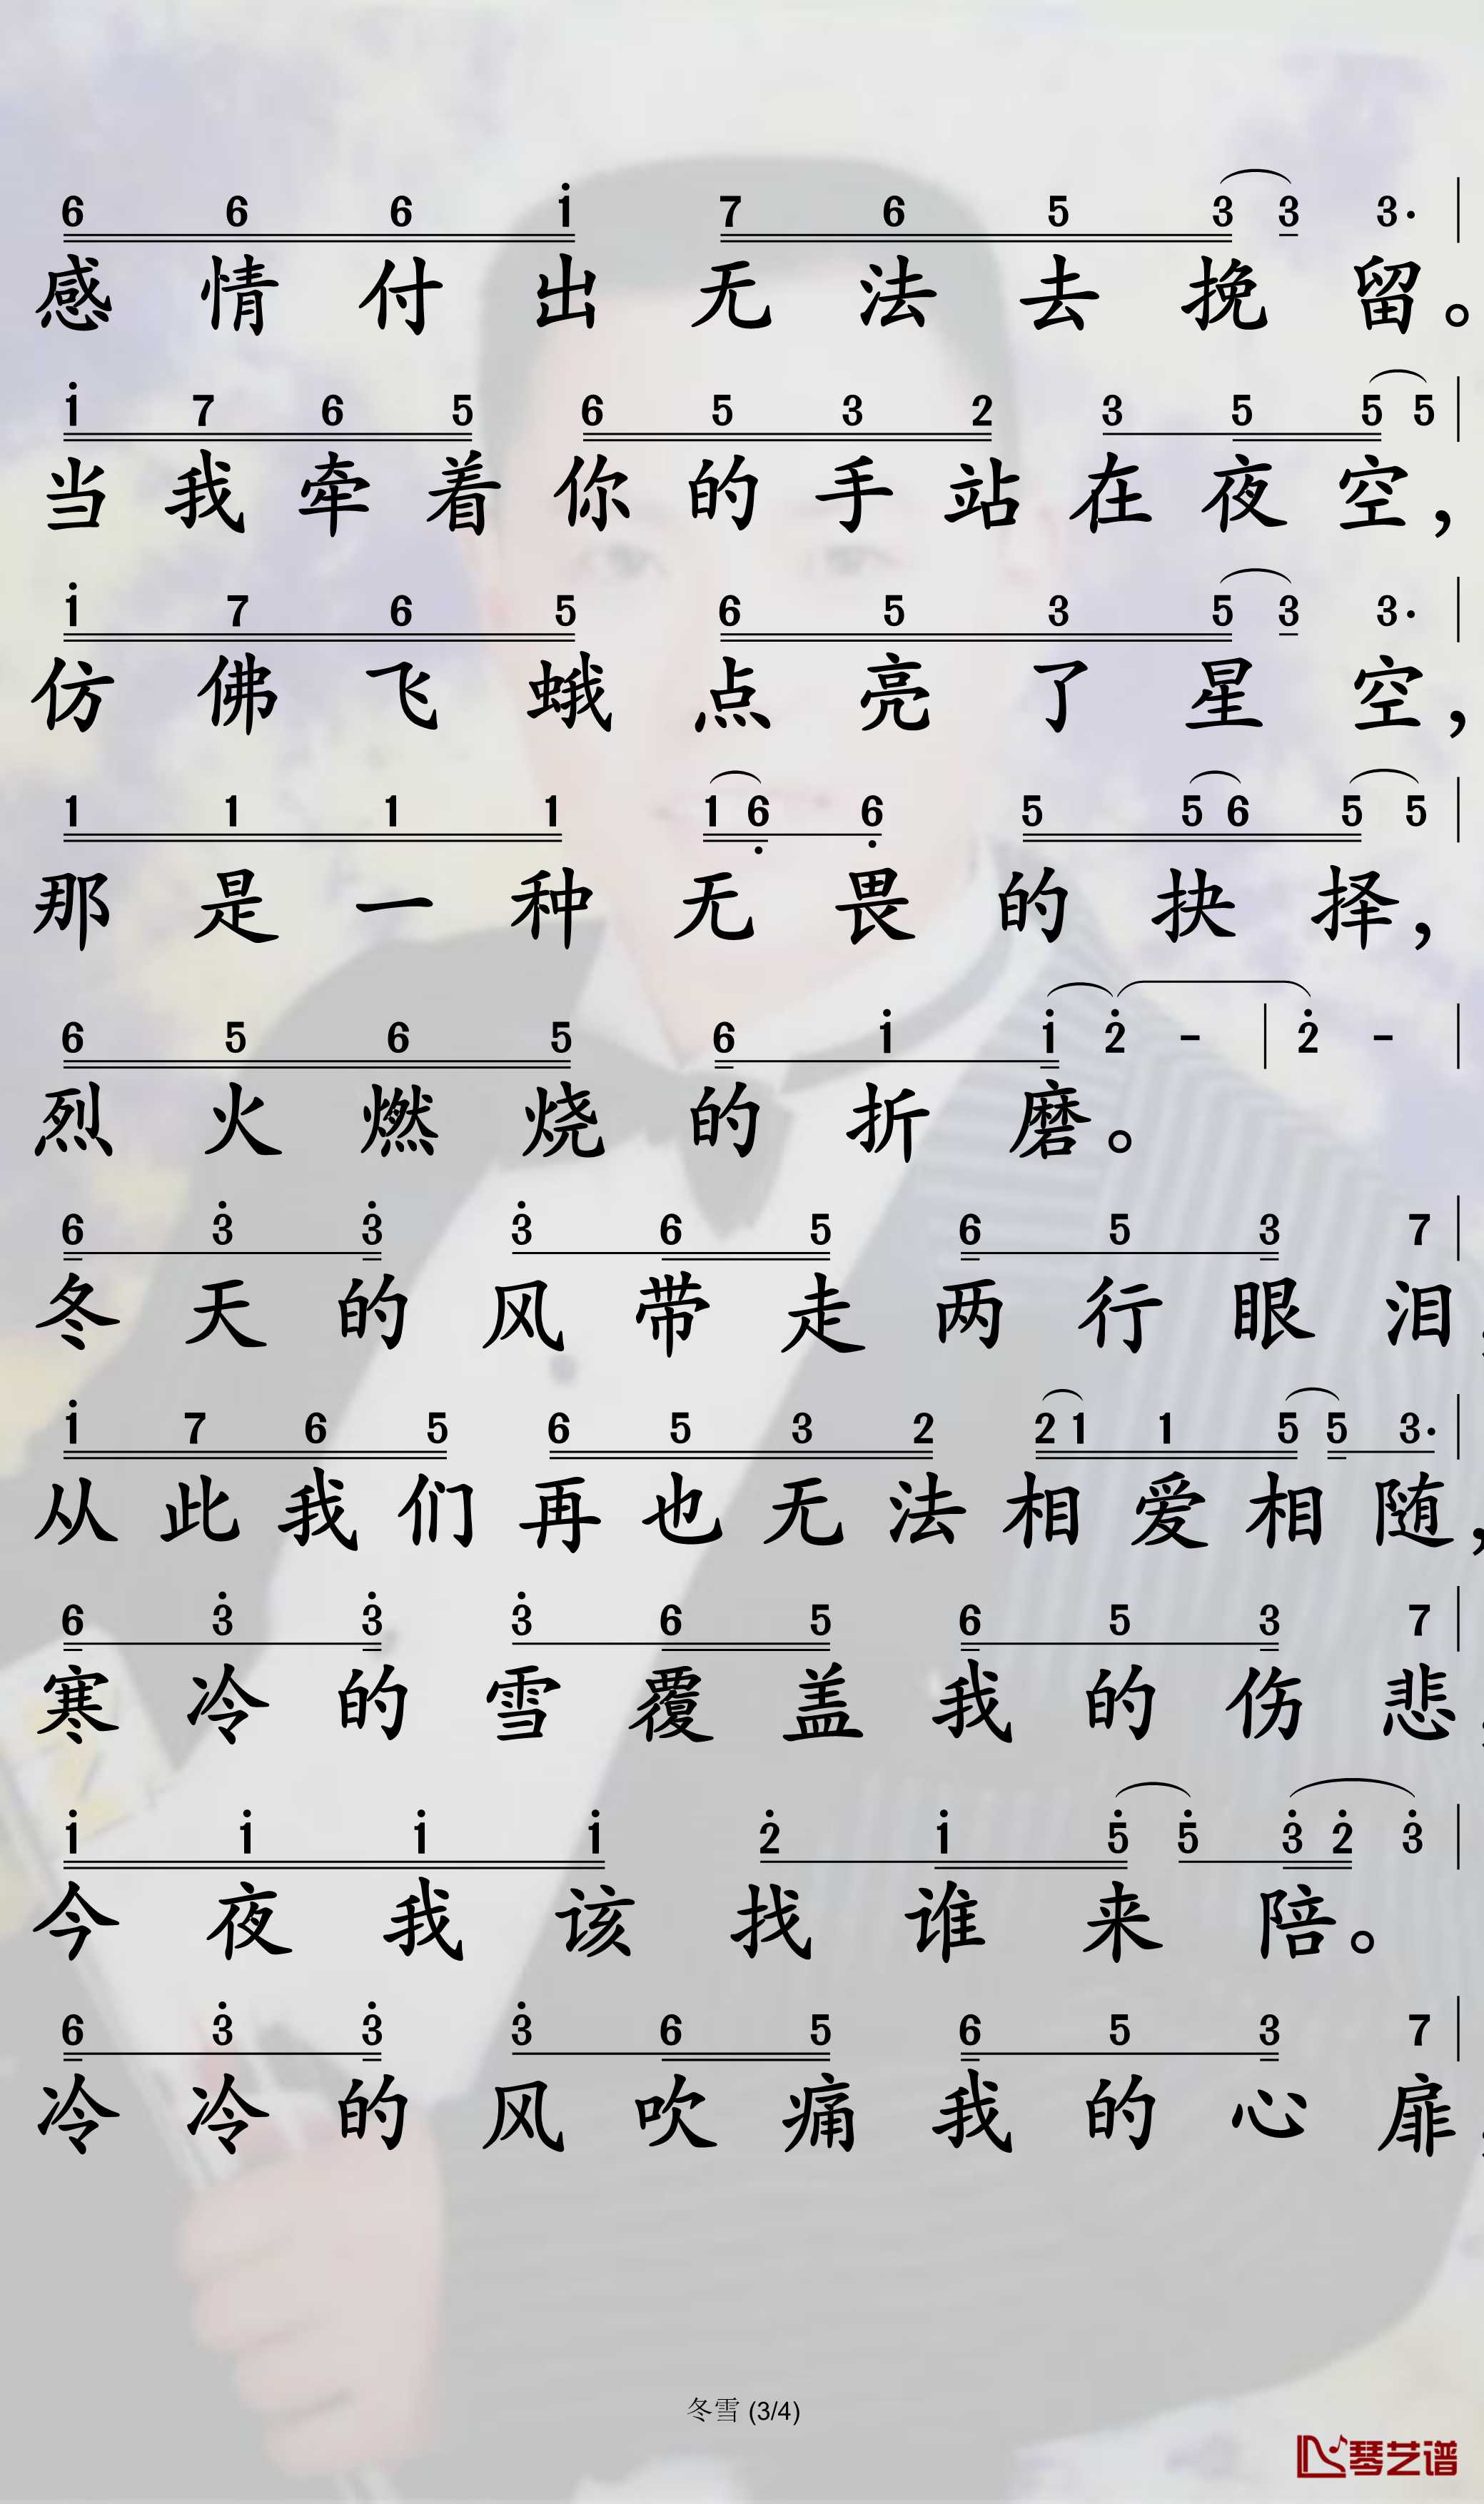 6 6 6 i 7 6 5 3 3 3·
感情付出无法去挽留。
i 7 6 5 6 5 3 2 3 5 5 5
当我牵着你的手站在夜空，
i 7 6 5 6 5 3 5 3 3·
仿佛飞蛾点亮了星空，
1 1 1 1 1 6̣ 6̣ 5 5 6 5 5
那是一种无畏的抉择，
6 5 6 5 6 i i 2̇ - | 2̇ - |
烈火燃烧的折磨。
6 3̇ 3̇ 3̇ 6 5 6 5 3 7
冬天的风带走两行眼泪，
i 7 6 5 6 5 3 2 2 1 1 5 5 3·
从此我们再也无法相爱相随，
6 3̇ 3̇ 3̇ 6 5 6 5 3 7
寒冷的雪覆盖我的伤悲，
i i i i 2̇ i 5̇ 5̇ 3̇ 2̇ 3̇
今夜我该找谁来陪。
6 3̇ 3̇ 3̇ 6 5 6 5 3 7
冷冷的风吹痛我的心扉，
冬雪 (3/4)
琴艺谱